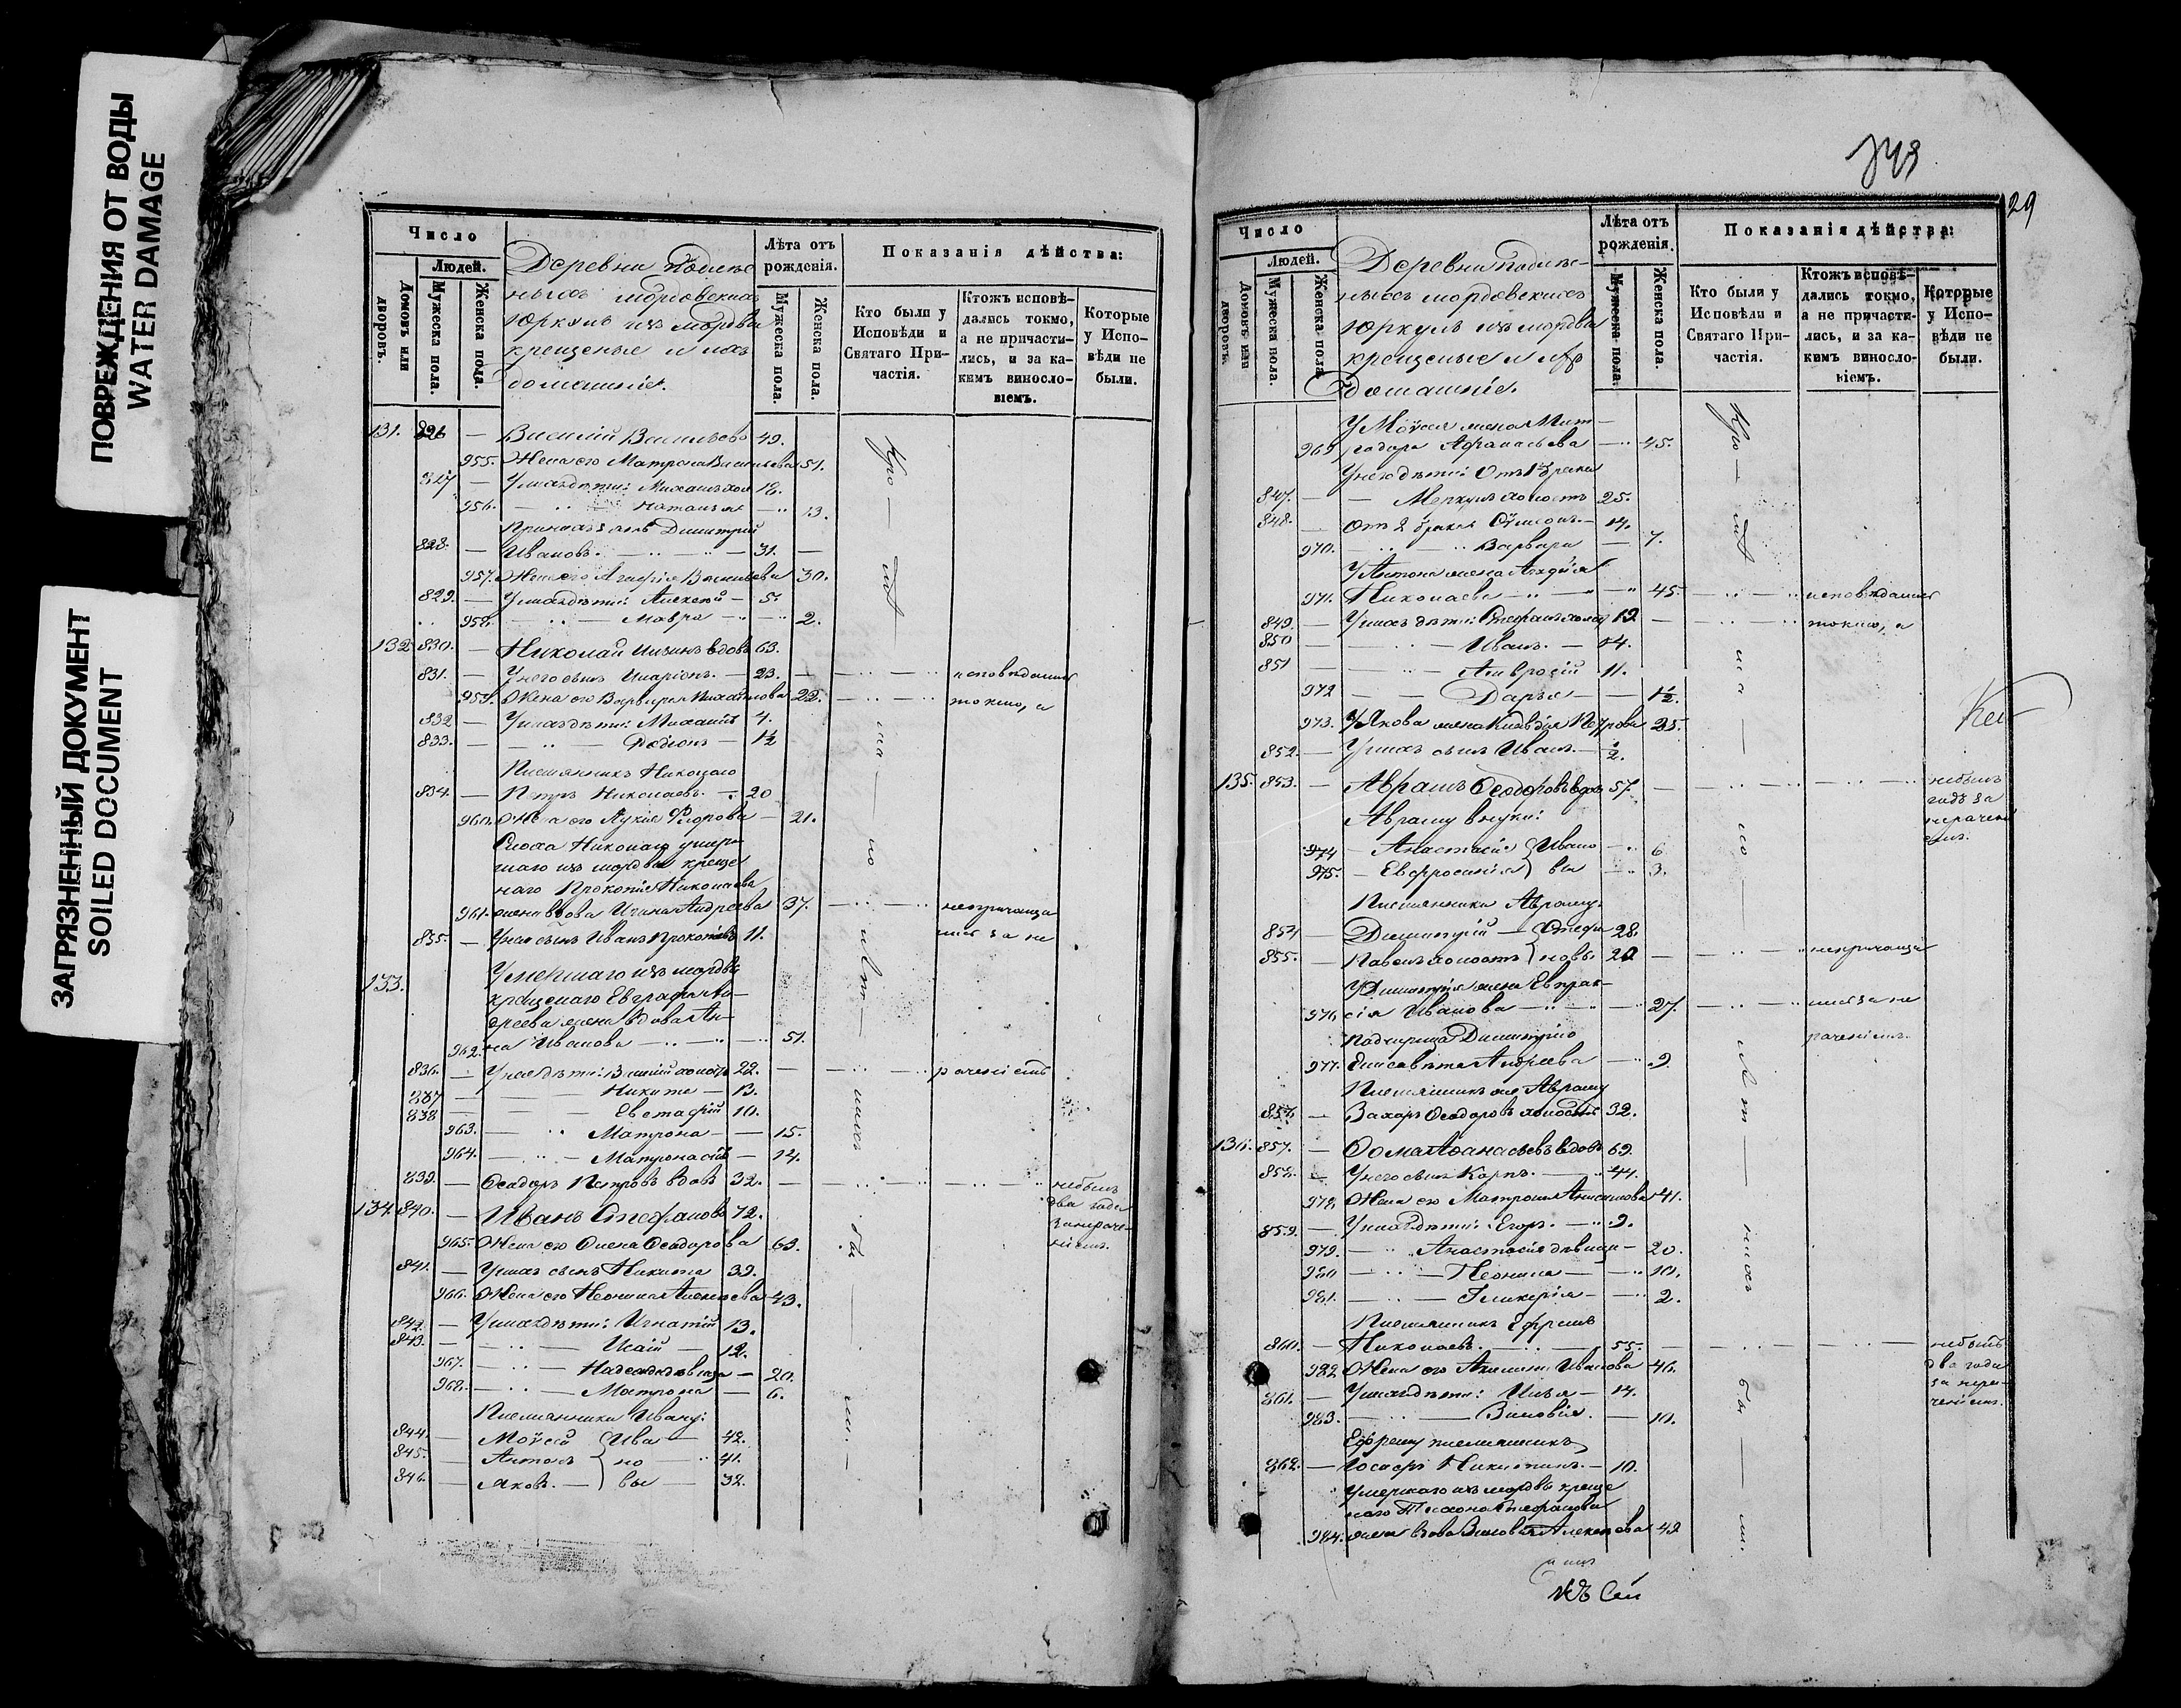 ПОВРЕЖДЕНИЯ ОТ ВОДЫ
WATER DAMAGE
ЗАГРЯЗНЕННЫЙ ДОКУМЕНТ
SOILED DOCUMENT
Число
Людей.
Домовъ или дворовъ.
Мужеска пола.
Женска пола.
Деревни
мордовскихъ
Юркуль изъ мордвы
крещеные и ихъ
домашніе.
Лѣта отъ рожденія.
Мужеска пола.
Женска пола.
Показанія дѣйства:
Кто были у Исповѣди и Святаго Причастія.
Ктожъ исповѣдались токмо, а не причастились, и за какимъ винословіемъ.
Которые у Исповѣди не были.
131. 826 — Василій Васильевъ 49.
955. Жена его Матрона Васильева 51.
827 — У нихъ дѣти: Михаилъ хол 18.
956. — Наталья — 13.
Димитрій
828. — Ивановъ. — 31. —
957. Жена его Агафія Васильева 30.
829. — У нихъ дѣти: Алексѣй — 5.
958. — Мавра — 2.
132 830. — Николай вдовъ 63.
831. — У него сынъ Иларіонъ. — 23. — исповѣдались
959. Жена его Варвара Михайлова 22. — токмо, а
832 — У нихъ дѣти: Михаилъ 4.
833. — Родіонъ — 1½
Племянникъ Николаю
834. — Петръ Николаевъ. — 20
960. Жена его Лукія Федорова — 21.
Сноха Николаю умер-
шаго изъ мордвы креще
наго Прокопія Николаева
961. жена вдова Андреева 37. — непричаща
835. — У нея сынъ Иванъ Прокопіевъ 11. лись за не
133. Умершаго изъ мордвы
крещенаго Евграфа Ан-
дреева жена вдова Ан-
962. на Иванова — 51.
836. — У нея дѣти: холостъ 22. — раченіемъ
837 — Никита — 13.
838 — Евстафій 10.
963. — Матрона — 15.
964. — Матрона — 14.
839. — Ѳеодоръ Петровъ вдовъ 32. — небылъ
134 840. — Иванъ Стефановъ 72. два года
965. Жена его Елена Ѳеодорова 63. за нераче-
ніемъ.
841. — У нихъ сынъ Никита 39.
966. Жена его Неонила Алексѣева 43.
842. — У нихъ дѣти: Игнатій 13.
843. — 12.
967. — Надежда дѣвица — 20.
968. — Матрона — 6.
Племянники Ивану:
844. — Моѵсей Ива — 42.
845. — Антонъ но — 41.
846. — Яковъ. — вы — 32.
29
Число
Людей.
Домовъ или дворовъ.
Мужеска пола.
Женска пола.
Деревни
мордовскихъ
Юркуль изъ мордвы
крещеные и ихъ
домашніе.
Лѣта отъ рожденія.
Мужеска пола.
Женска пола.
Показанія дѣйства:
Кто были у Исповѣди и Святаго Причастія.
Ктожъ исповѣдались токмо, а не причастились, и за какимъ винословіемъ.
Которые у Исповѣди не были.
У Моѵсея жена Мит-
969 родора Афанасьева — 45.
У нея дѣти: Отъ 1 брака
847. — Меркулъ холостъ 25.
848. — Отъ 2 брака Сѵмеонъ. — 14.
970. — Варвара — 7.
У Антона жена
971. Николаева — 45. — исповѣдались
849. — У нихъ дѣти: Стефанъ холос 19. — токмо, а
850 — Иванъ. — 14.
851 — Амвросій 11.
972 — Дарья — 1½.
973. У Якова жена Петрова 25.
852. — У нихъ сынъ Иванъ. — ½.
135. 853. — Аврамъ Ѳеодоровъ вдовъ 57. — небылъ
годъ за
Авраму внуки: нерачені
емъ.
974 — Анастасія Ивано — 6
975. — Евфросинія вы — 3.
Племянники Авраму:
854 — Димитрій — Стефа 28.
855. — Павелъ холостъ новы 20 — непричаща
У Димитрія жена Еврак-
976 сія Иванова — 27. — лись за не
Падчерица Димитрію раченіемъ.
977. Елисавета Андреева — 9.
Племянникъ же Авраму
856. — Захаръ Ѳеодоровъ холостъ 32.
136. 857. — Ѳома Аѳанасьевъ вдовъ 69.
858. — У него сынъ Карпъ. — 44.
978. Жена его Матрона Анисимова 41.
859. — У нихъ дѣти: Егоръ. — 9.
979. — Анастасія дѣвица — 20.
980 — Неонила — 10.
981. — Гликерія — 2.
Племянникъ Ефремъ
860. — Николаевъ. — 55. — небылъ
982 Жена его Акилина Иванова 46. два года
861. — У нихъ дѣти: Илья — 14. за нера-
983. — Зиновія. — 10. ченіемъ.
Ефрему племянникъ
862. — Іосифъ Никитинъ. — 10.
Умершаго изъ мордвы креще
наго Тихона Стефанова
984. жена вдова Зиновія Алексѣева 49